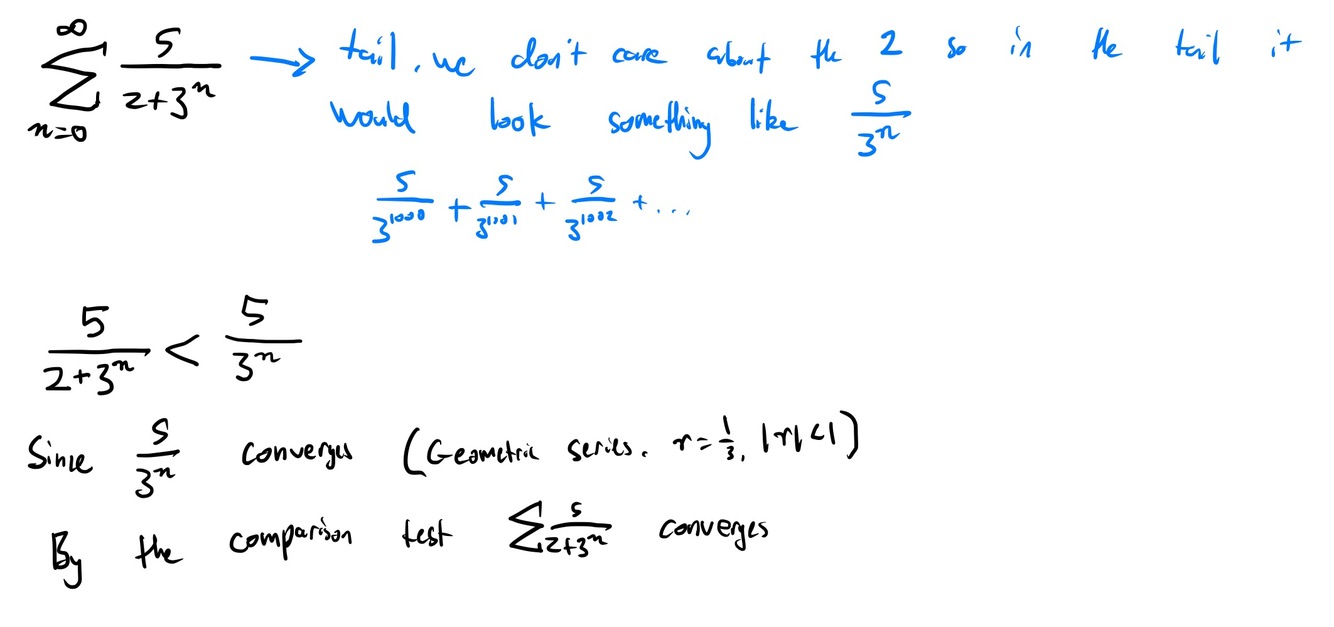 ∞∑n=0 5/(2+3ⁿ) → tail, we don't care about the 2 so in the tail it
would look something like 5/3ⁿ
5/3¹⁰⁰⁰ + 5/3¹⁰⁰¹ + 5/3¹⁰⁰² + ...
5/(2+3ⁿ) < 5/3ⁿ
Since 5/3ⁿ converges (Geometric series. r=1/3, |r|<1)
By the comparison test ∑ 5/(2+3ⁿ) converges